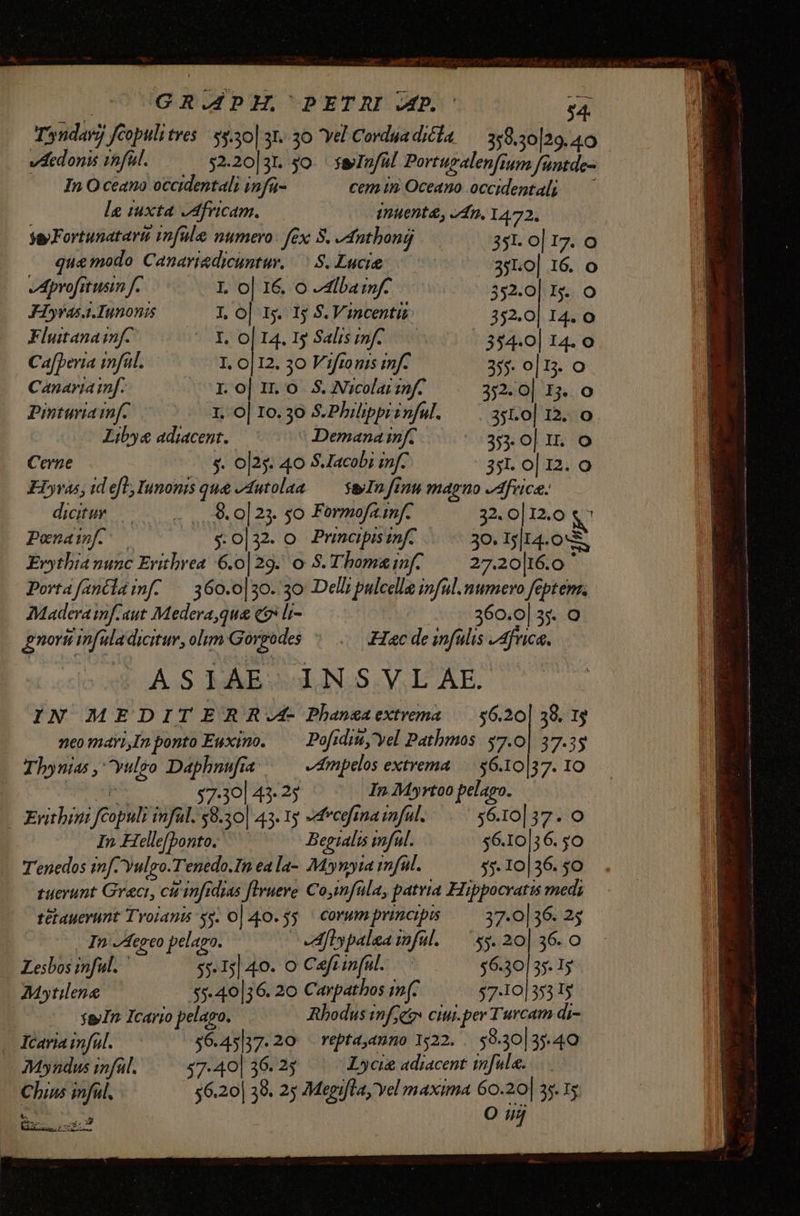 GRAPH. PETRI AP. 54
Tyndarij scopuli tres 55.30|31. 30
Aedonis insul. 52.20|31. 50
In Oceano occidentali insu-
læ iuxta Africam.
Fortunatarũ insulæ numero sex
quæ modo Canariæ dicuntur.
Aprositus in s. 1. 0|16. 0
Hyras.i.Iunonis 1. 0|15. 15
Fluitana ins. 1. 0|14. 15
Casperia insul. 1. 0|12. 30
Canaria ins. 1. 0|11. 0
Pinturia ins. 1. 0|10. 30
Libyæ adiacent.
Cerne 5. 0|25. 40
Hyras, id est, Iunonis quæ Autolaa
dicitur 8. 0|23. 50
Pœna ins. 5. 0|32. 0
Erythia nunc Erithrea 6.0|29. 0
Porta sancta ins. 360.0|30. 30
Madera ins. aut Medera, quæ & li-
gnorũ insula dicitur, olim Gorgodes
vel Cordua dicta 358.30|29.40
Insul Portugalensium sunt de-
cem in Oceano occidentali
inuentæ, An. 1472.
S. Anthonij 351. 0|17. 0
S. Luciæ 351.0|16. 0
Alba ins. 352.0|15. 0
S. Vincentii 352.0|14. 0
Salis ins. 354.0|14. 0
Visionis ins. 355. 0|13. 0
S. Nicolai ins. 352. 0|13. 0
S. Philippi insul. 351.0|12. 0
Demana ins. 353. 0|11. 0
S. Iacobi ins. 351. 0|12. 0
In sinu magno Africæ.
Formosa ins. 32. 0|12.0
Principis ins. 30. 15|14.0
S. Thomæ ins. 27.20|16.0
Delli pulcella insul. numero septem.
360.0|35. 0
Hæc de insulis Africæ.
ASIAE INSVLAE.
IN MEDITERRA-
neo mari, In ponto Euxino.
Thynias, vulgo Daphnusia
57.30|43.25
Erithini scopuli insul. 58.30|43. 15
In Hellesponto.
Tenedos ins. vulgo. Tenedo. In ea la-
tuerunt Græci, cũ insidias struere
tẽtauerunt Troianis 55. 0|40. 55
In Aegeo pelago.
Lesbos insul. 55. 15|40. 0
Mytilene 55.40|36. 20
In Icario pelago.
Icaria insul. 56.45|37. 20
Myndus insul. 57.40|36. 25
Chius insul. 56.20|38. 25
Phanæa extrema 56.20|38. 15
Posidiũ, vel Pathmos 57.0|37.35
Ampelos extrema 56.10|37. 10
In Myrtoo pelago.
Arcesina insul. 56.10|37. 0
Begialis insul. 56.10|36. 50
Mynyia insul. 55. 10|36. 50
Co, insula, patria Hippocratis medi-
corum principis 37.0|36. 25
Astypalæa insul. 55. 20|36. 0
Casi insul. 56.30|35. 15
Carpathos ins. 57.10|353 15
Rhodus ins, & ciui. per Turcam di-
repta, anno 1522. 58.30|35.40
Lyciæ adiacent insulæ.
Megista, vel maxima 60.20|35. 15
O iij